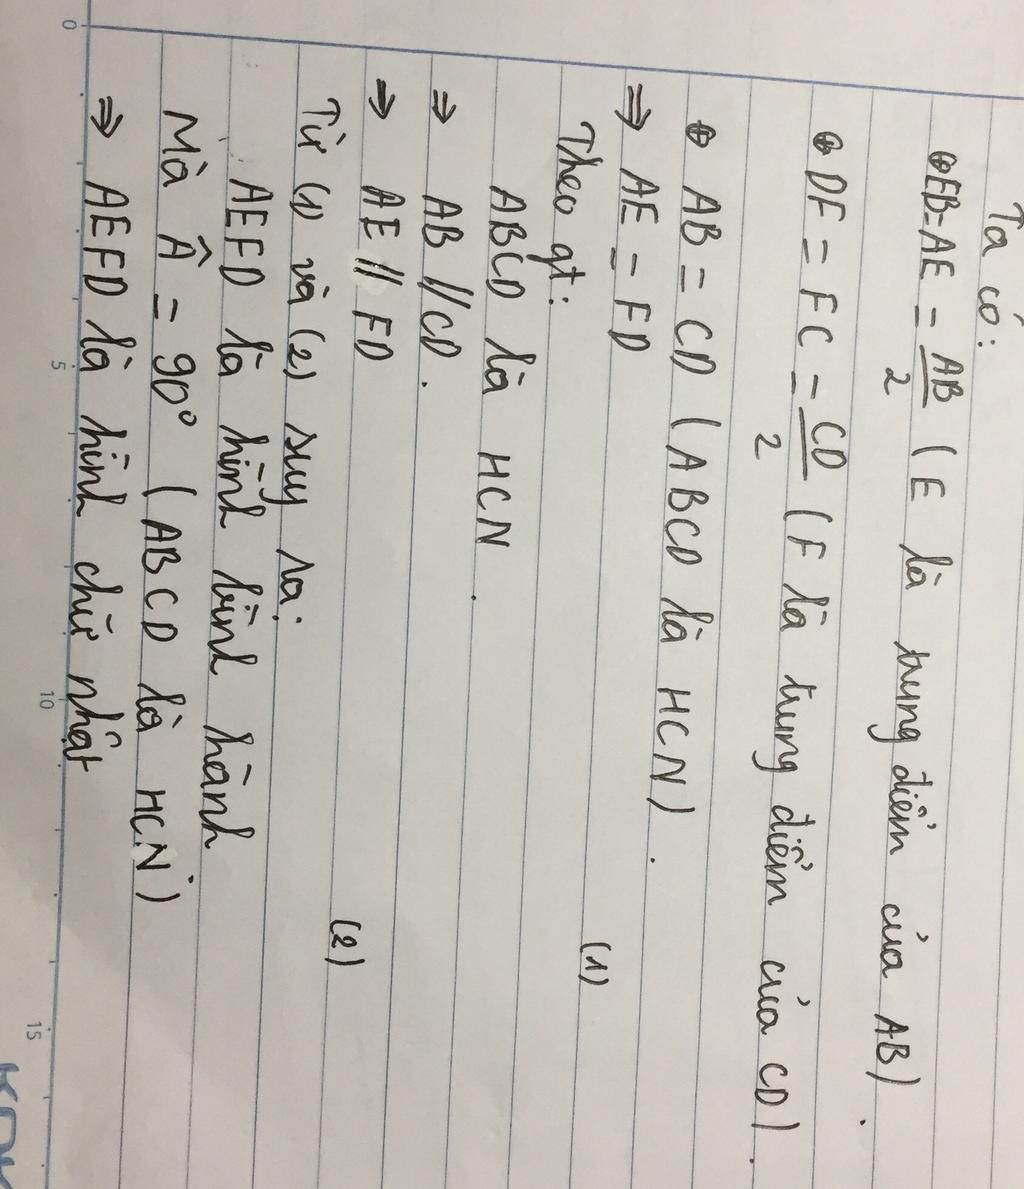 Ta có:
⊕ EB = AE = AB/2 (E là trung điểm của AB).
⊕ DF = FC = CD/2 (F là trung điểm của CD).
⊕ AB = CD (ABCD là HCN).
⇒ AE = FD (1)
Theo gt:
ABCD là HCN.
⇒ AB // CD.
⇒ AE // FD (2)
Từ (1) và (2) suy ra:
AEFD là hình bình hành
Mà Â = 90° (ABCD là HCN)
⇒ AEFD là hình chữ nhật
0 5 10 15